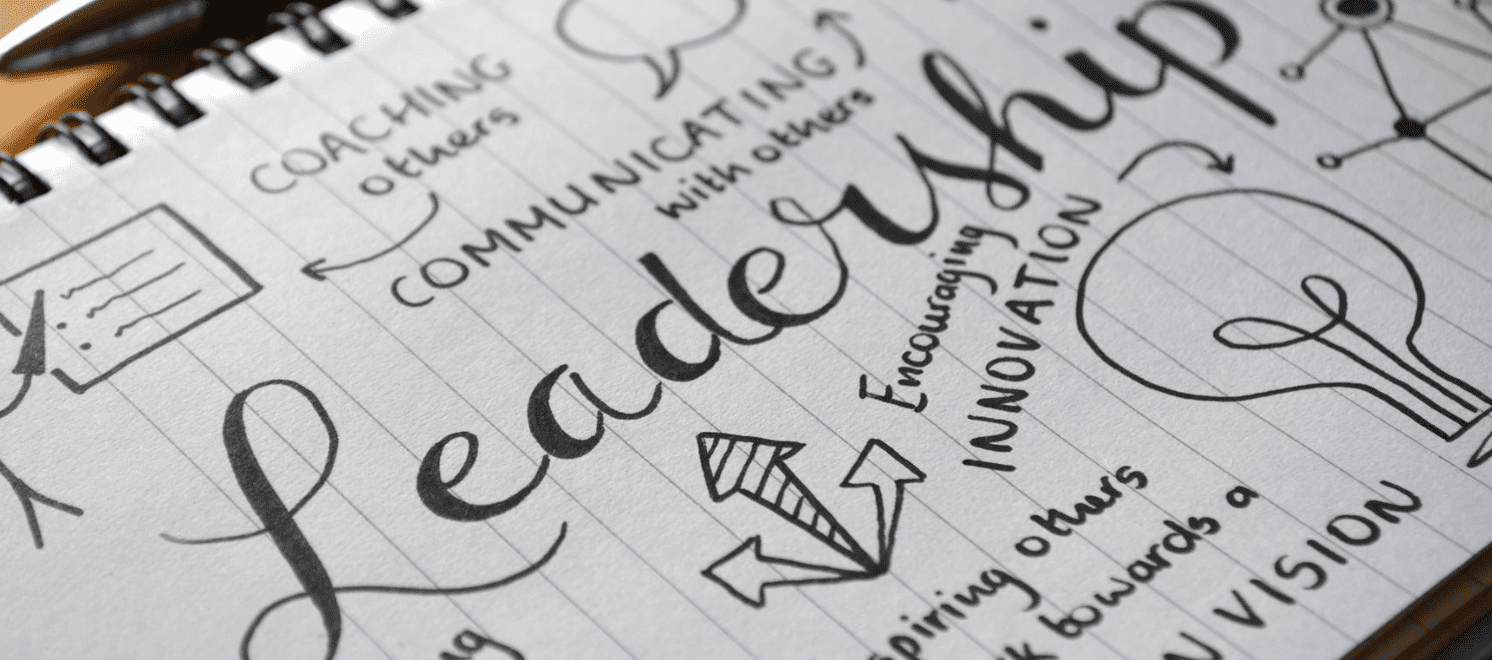 COACHING
others
COMMUNICATING
with others
Leadership
Encouraging
INNOVATION
spiring others
k towards a
N VISION
ng